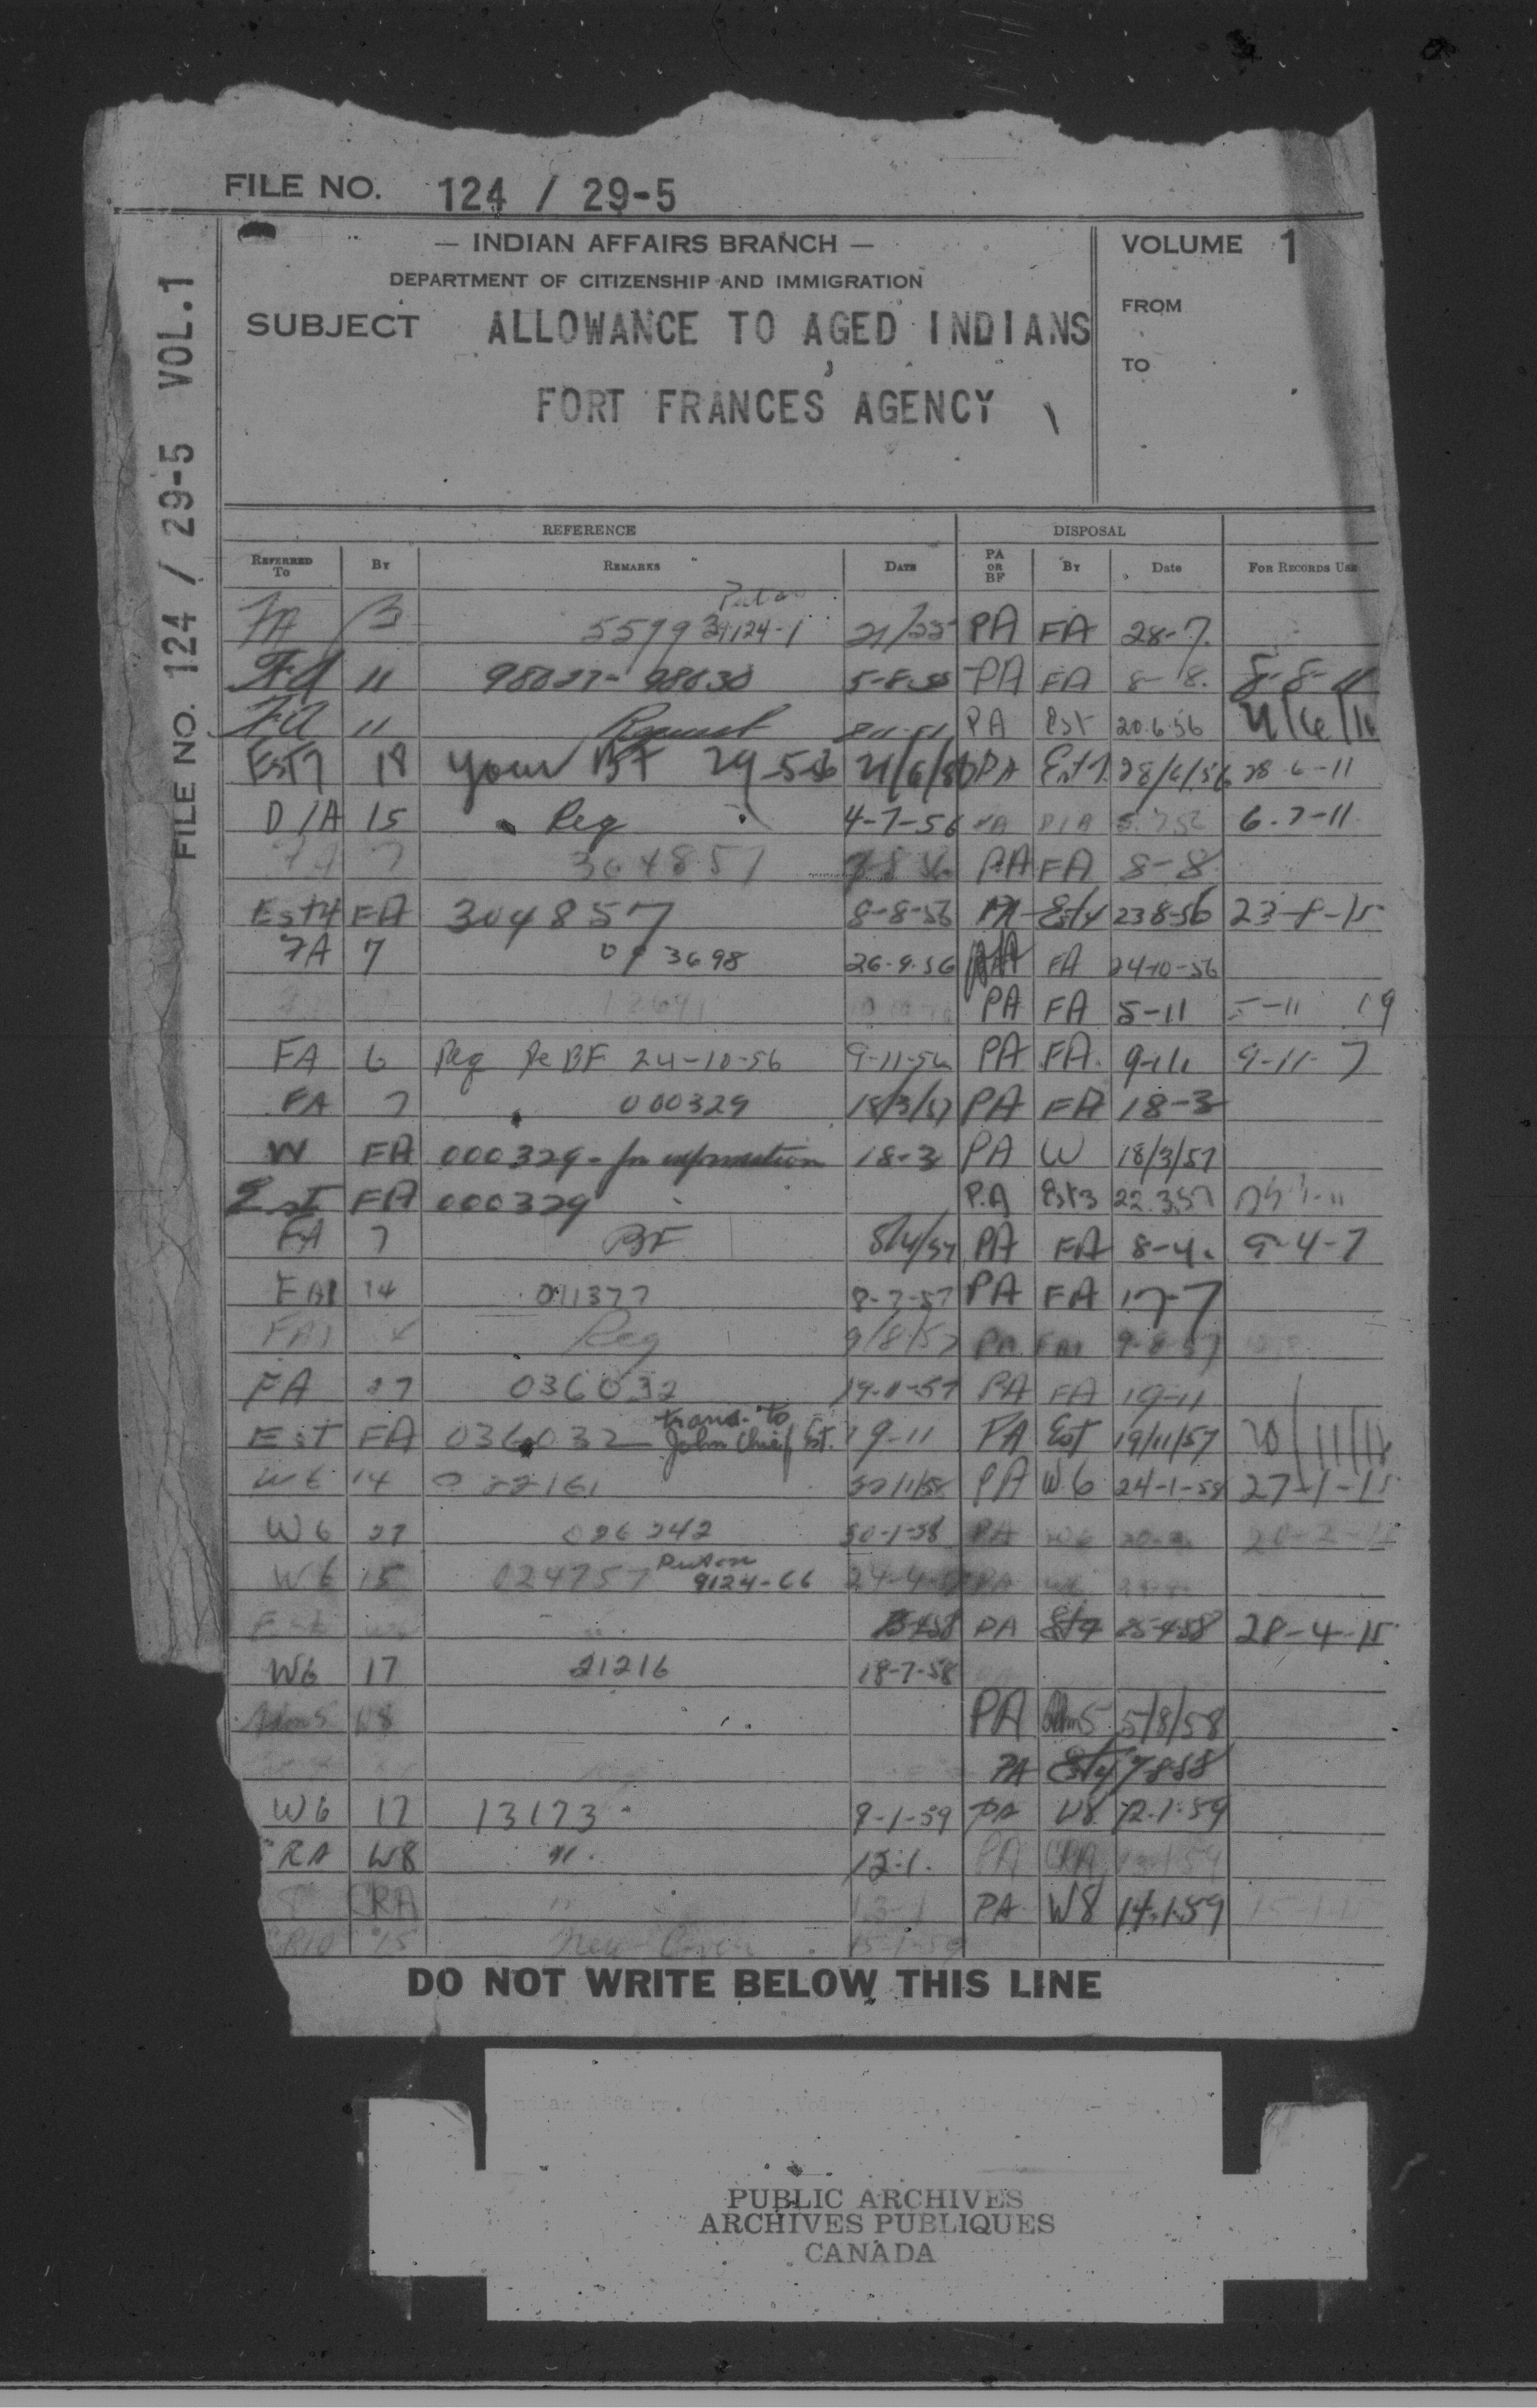 FILE NO. 124 / 29-5
— INDIAN AFFAIRS BRANCH —
DEPARTMENT OF CITIZENSHIP AND IMMIGRATION
SUBJECT ALLOWANCE TO AGED INDIANS
FORT FRANCES AGENCY
VOLUME 1
FROM
TO
FILE NO. 124 / 29-5 VOL.1
REFERENCE DISPOSAL
REFERRED TO BY REMARKS DATE PA OR BF BY Date FOR RECORDS USE
FA 29124-1 PA FA 28-7.
FA 11 98027-98030 5-8-55 PA FA 8-8. 8-8-11
FA 11 Request PA Est 20.6.56 21/6/11
Est7 18 your BF 29-5-56 21/6/56 PA Est 7 28/6/56 28-6-11
D/A 15 Reg 4-7-56 PA D/A 5.7.56 6.7-11
FA 7 304857 7-8-56 PA FA 8-8
Est4 FA 304857 8-8-56 PA Est4 23 8-56 23-8-15
FA 7 26.9.56 FA 24-10-56
PA FA 5-11 5-11 19
FA 6 Reg Re BF 24-10-56 9-11-56 PA FA. 9-11 9-11-7
FA 7 000329 18/3/57 PA FA 18-3
W FA 000329 - for information 18-3 PA W 18/3/57
Est FA 000329 P.A Est3 22.3.57
FA 7 BF 8/4/57 PA FA 8-4. 9-4-7
FA1 14 011377 8-7-57 PA FA 17-7
FA1 Reg 9/8/57 PA FA1 9-8-57
FA 27 036032 19-11-57 PA FA 19-11
Est FA 036032 trans. to John Chief Est. 19-11 PA Est 19/11/57 20/11/18
W6 14 22161 22/1/58 PA W6 24-1-58 27-1-15
W6 27 026242 30-1-58 PA W6
W6 15 024757 Put on 9124-66 PA
PA Est4 25-4-58 28-4-15
W6 17 21216 18-7-58
Adm5 W8 PA Adm5 5/8/58
PA Est4 7-8-58
W6 17 13173 9-1-59 PA W8 12.1.59
RA W8 " 12-1. PA
CRA " 13-1 PA W8 14.1.59 15-1-
15 New Cover 15-1-59
DO NOT WRITE BELOW THIS LINE
PUBLIC ARCHIVES
ARCHIVES PUBLIQUES
CANADA